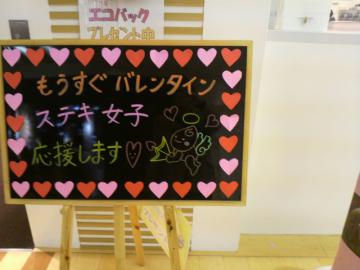 エコバック
プレゼント中
もうすぐ バレンタイン
ステキ女子
応援します